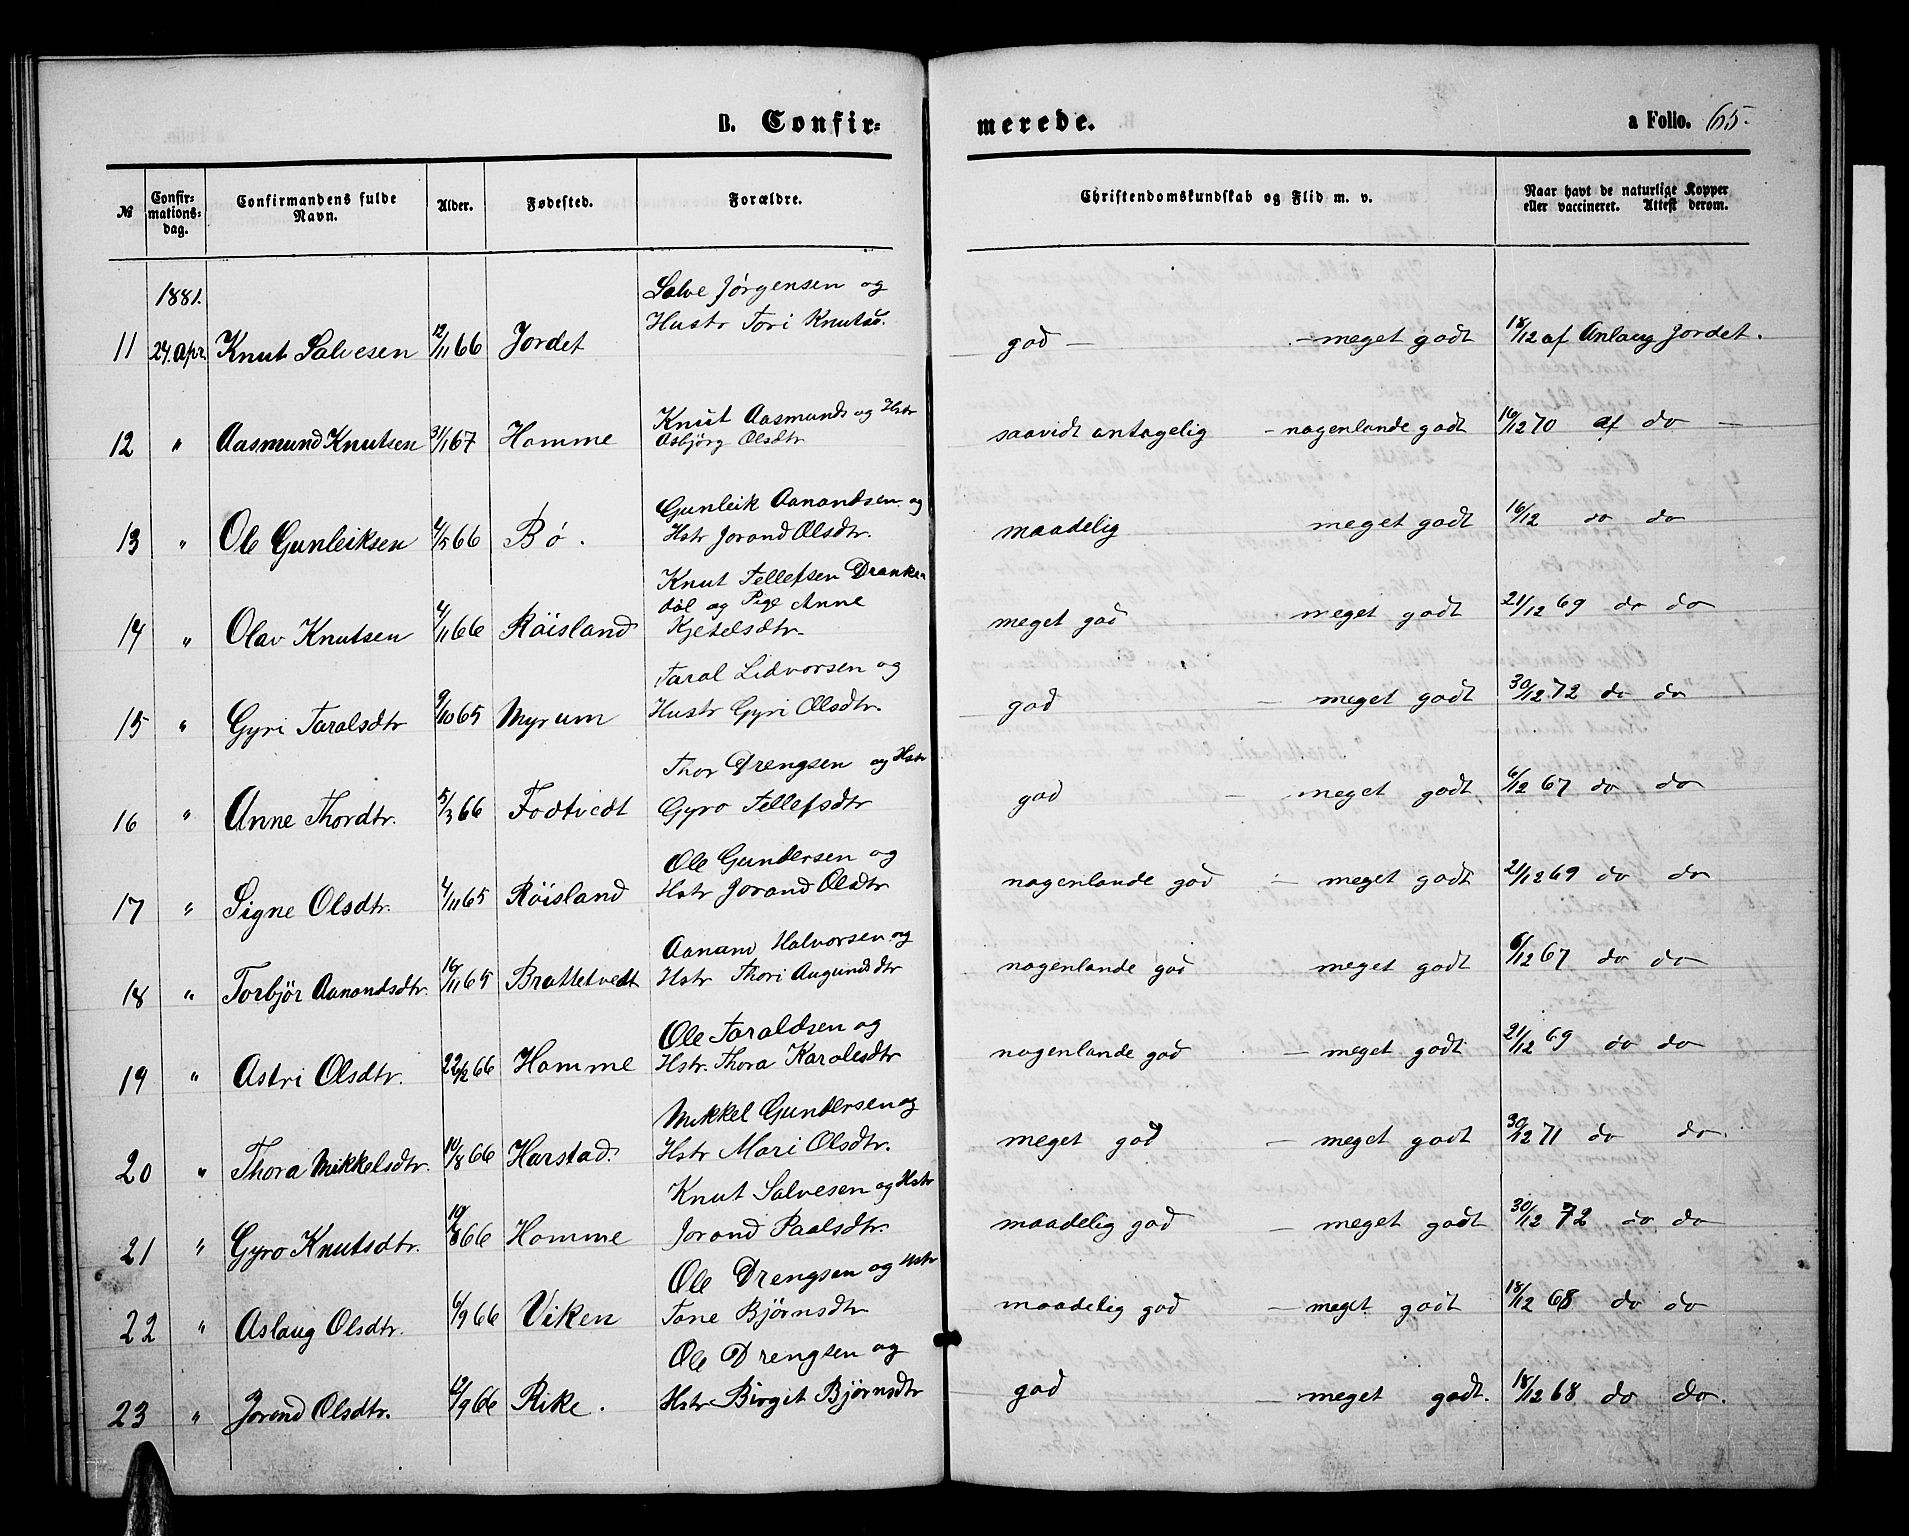 B. Confir=
merede.
a Folio. 65.
№ Confir- mations- dag. Confirmandens fulde Navn. Alder. Fødested. Forældre. Christendomskundskab og Flid m. v. Naar havt de naturlige Kopper eller vaccineret. Attest derom.
1881. Salve Jørgensen og
11 24. Apr. Knut Salvesen 12/11 66 Jordet Hustr Tori Knutsd. god - - meget godt 18/12 af Anlaug Jordet.
Knut Aasmunds og Hstr
12 " Aasmund Knutsen 31/1 67 Homme Asbjörg Olsdtr saavidt antagelig - nogenlunde godt 16/12 70 af do -
Gunleik Aanandsen og
13 " Ole Gunleiksen 4/5 66 Bø. Hstr Jorand Olsdtr. maadelig meget godt 16/12 do do
Knut Tellefsen Dranke-
dal og Pige Anne
14 " Olav Knutsen 4/11 66 Röisland Kjetelsdtr. meget god meget godt 21/12 69 do do
Taral Lidvorsen og
15 " Gyri Taralsdtr 9/10 65 Myrum Hustr Gyri Olsdtr. god - meget godt 30/12 72 do do
Thor Drengsen og Hstr
16 " Anne Thordtr. 5/3 66 Fodtvedt Gyro Tellefsdtr god - meget godt 6/12 67 do do
Ole Gundersen og
17 " Signe Olsdtr. 4/11 65 Röisland Hstr Jorand Olsdtr nogenlunde god - meget godt 21/12 69 do do
Aanand Halvorsen og
18 " Torbjör Aanandsdtr. 16/11 65 Brattetvedt Hstr Thori Augundsdtr nogenlunde god meget godt 6/12 67 do do
Ole Taraldsen og
19 " Astri Olsdtr. 22/2 66 Homme Hstr. Thora Karolesdtr nogenlunde god - meget godt 21/12 69 do do
Mikkel Gundersen og
20 " Thora Mikkelsdtr. 14/8 66 Harstad. Hstr Mari Olsdtr. meget god - meget godt 30/12 71 do do
Knut Salvesen og Hstr
21 " Gyro Knutsdtr. 19/8 66 Homme Jorand Paalsdtr. maadelig god - meget godt 30/12 72 do do
Ole Drengsen og Hstr
22 " Aslaug Olsdtr. 6/9 66 Viken Tone Björnsdtr maadelig god - meget godt 18/12 68 do do
Ole Drengsen og
23 " Jorend Olsdtr. 12/9 66 Rike. Hstr Birgit Björnsdtr god meget godt. 18/12 68 do do.